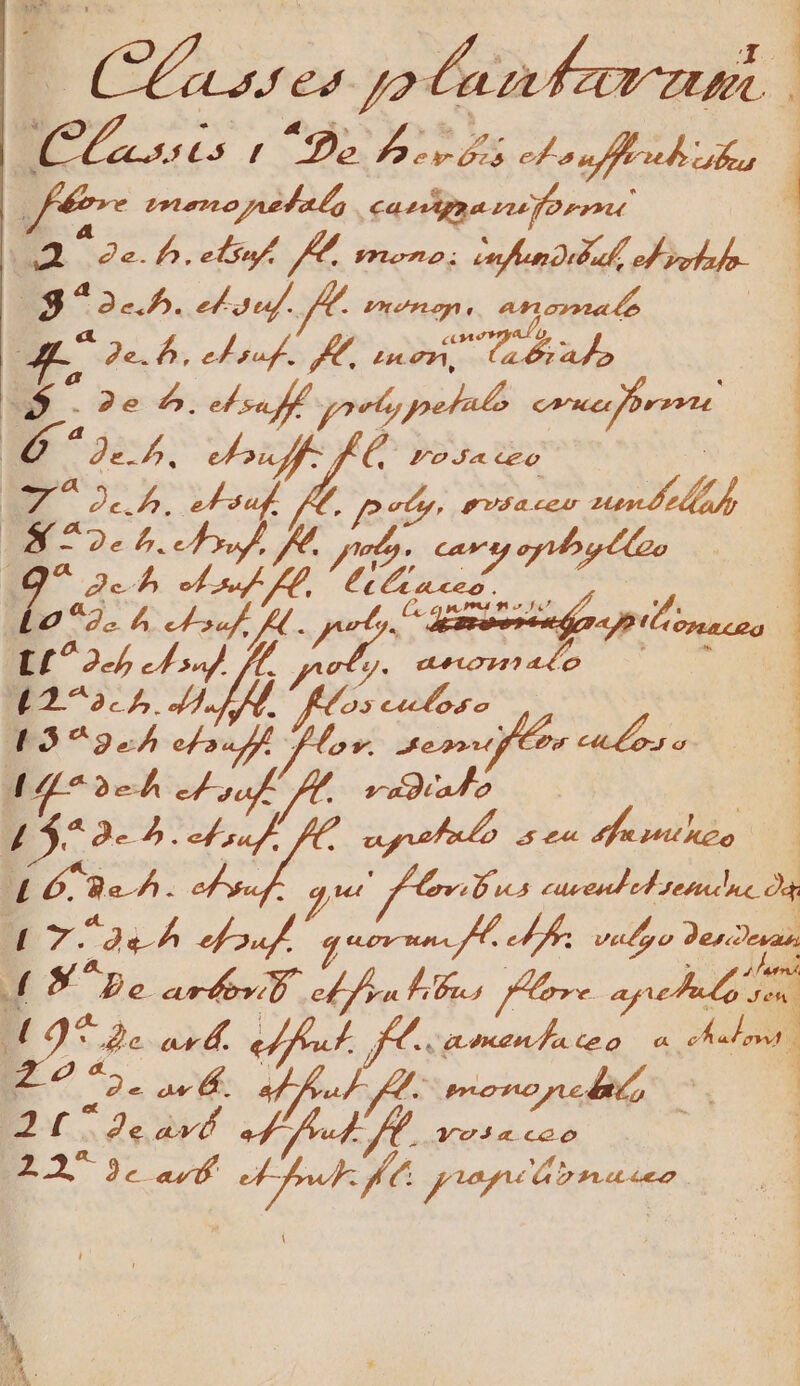 1
Classes plantarum
Classis 1a De herbis et suffruticibus
flore monopetalo campaniformi
2a de. h. et suf. fl. mono: infundibul, et rotato
3a de. h. et suf. fl. monop. anomalo
4a de. h. et suf. fl. mon, anomalo labiato
5a. de h. et suff polypetalo cruciformi
6a de. h. et suff. fl. rosaceo
7a de. h. et suf. fl. poly, rosaceo umbellato
8a De h. et suf. fl. poly. caryophylleo
9a de h et suf fl. liliaceo.
10a de h et suf. fl. poly. leguminoso papilionaceo
11a de h et suf. fl. poly. anomalo
12a de h. et suf fl. flosculoso
13a de h et suff. flor. semiflosculoso
14a de h et suf fl. radiato
15.a de h. et suf. fl. apetalo seu stamineo
16.a de h. et suf. qui floribus carent et semine do
17.a de h et suf. quorum fl. et fr. vulgo desideran
18a De arborib et frutibus flore apetalo seu stami
19a de arb. et frut. fl. amentaceo a chatons
20a de arb. et frut fl. monopetalo
21a de arb et frut. fl. rosaceo
22a de arb et frut. fl. papilionaceo